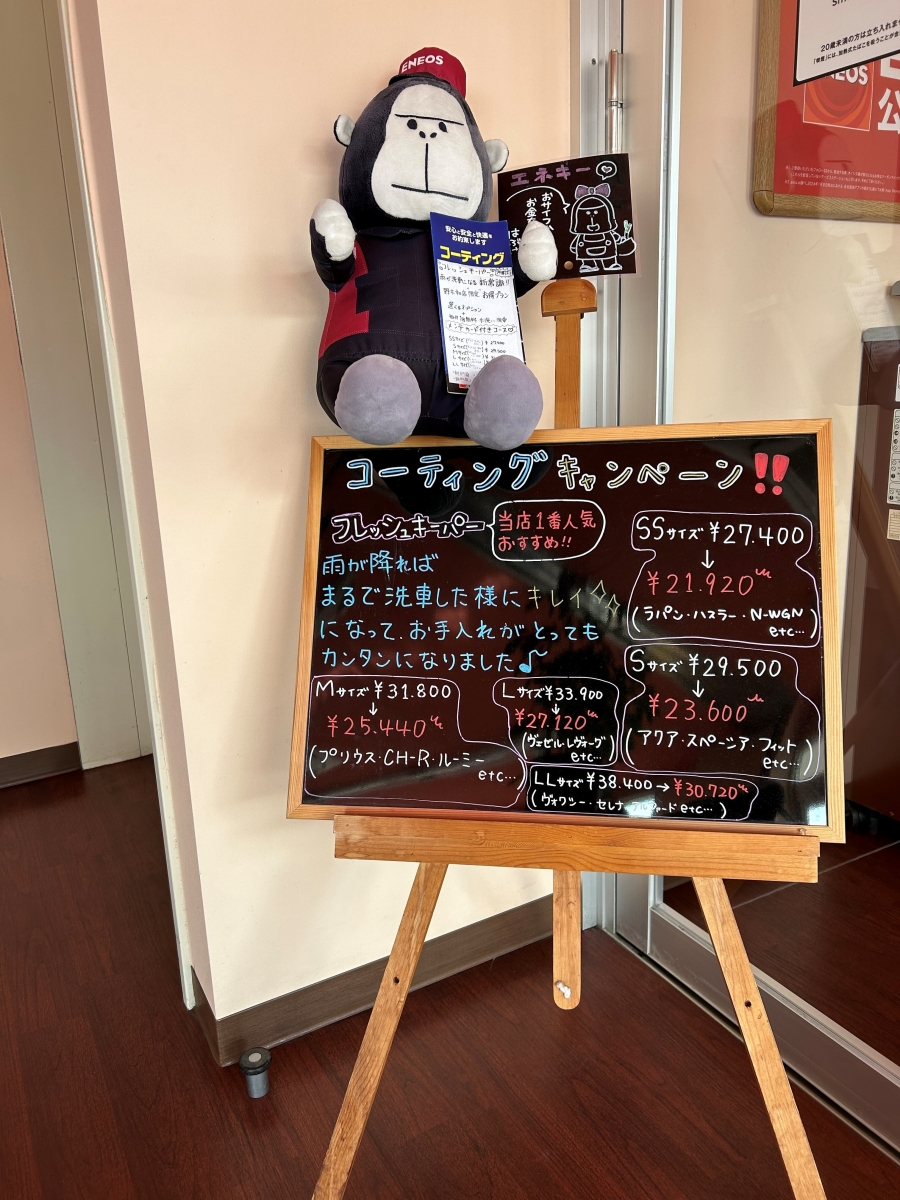 ENEOS
エネキー
おサイフ
お金
安心と安全と快適を
お約束します
コーティング
フレッシュキーパー
雨が洗車になる新常識!!
お得プラン
メンテカード付きコース
コーティングキャンペーン!!
フレッシュキーパー
当店1番人気
おすすめ!!
雨が降れば
まるで洗車した様にキレイ
になって、お手入れがとっても
カンタンになりました♪
SSサイズ ¥27.400
↓
¥21.920
(ラパン・ハスラー・N-WGN
etc…)
Sサイズ ¥29.500
↓
¥23.600
(アクア・スペーシア・フィット
etc…)
Mサイズ ¥31.800
↓
¥25.440
(プリウス・CH-R・ルーミー
etc…)
Lサイズ ¥33.900
↓
¥27.120
(ヴェゼル・レヴォーグ
etc…)
LLサイズ ¥38.400→¥30.720
(ヴォクシー・セレナ・アルファードetc…)
20歳未満の方は立ち入れま
ENEOS
公